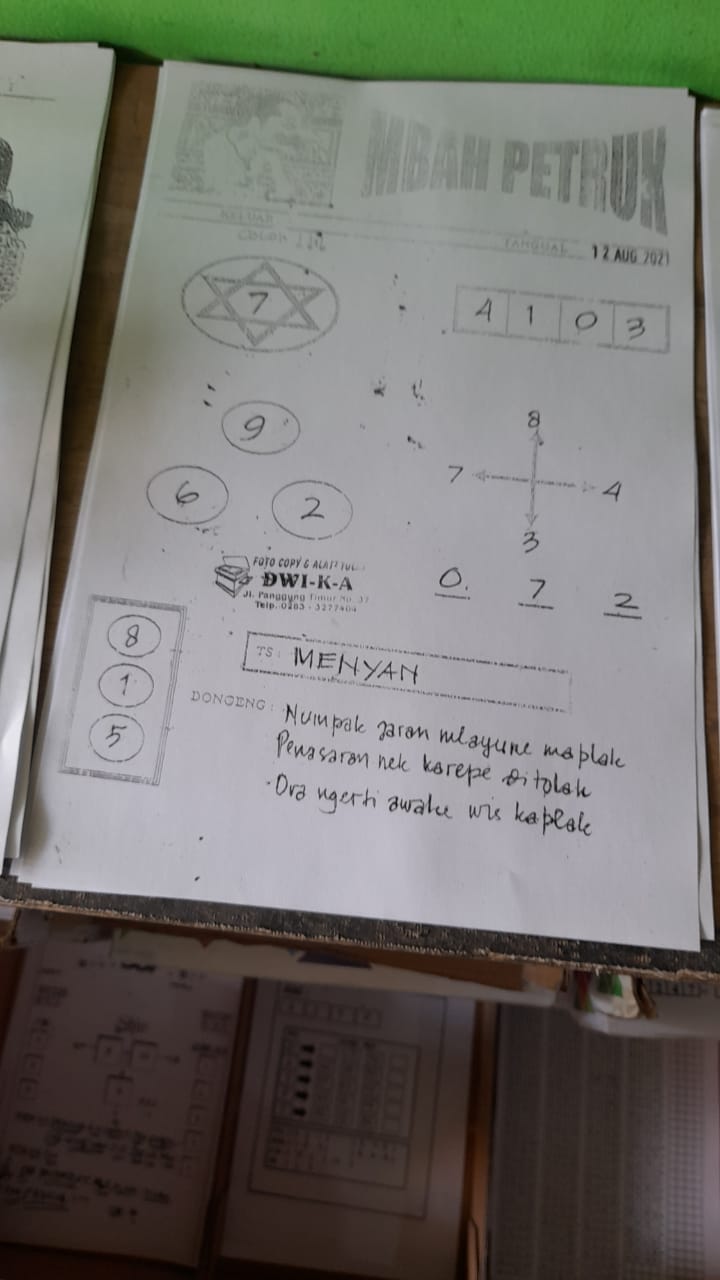 MBAH PETRUK
KELUAR
TANGGAL 12 AUG 2021
COLOK
7
4 1 0 3
9
6 2
8
7 4
3
0. 7 2
FOTO COPY & ALAT TUL
DWI-K-A
Jl. Panggung Timur No. 37
Telp. 0283 - 3277404
8
1
5
TS : MENYAN
DONGENG : Numpak jaran mlayune maplak
Penasaran nek karepe ditolak
Ora ngerti awake wis kaplak